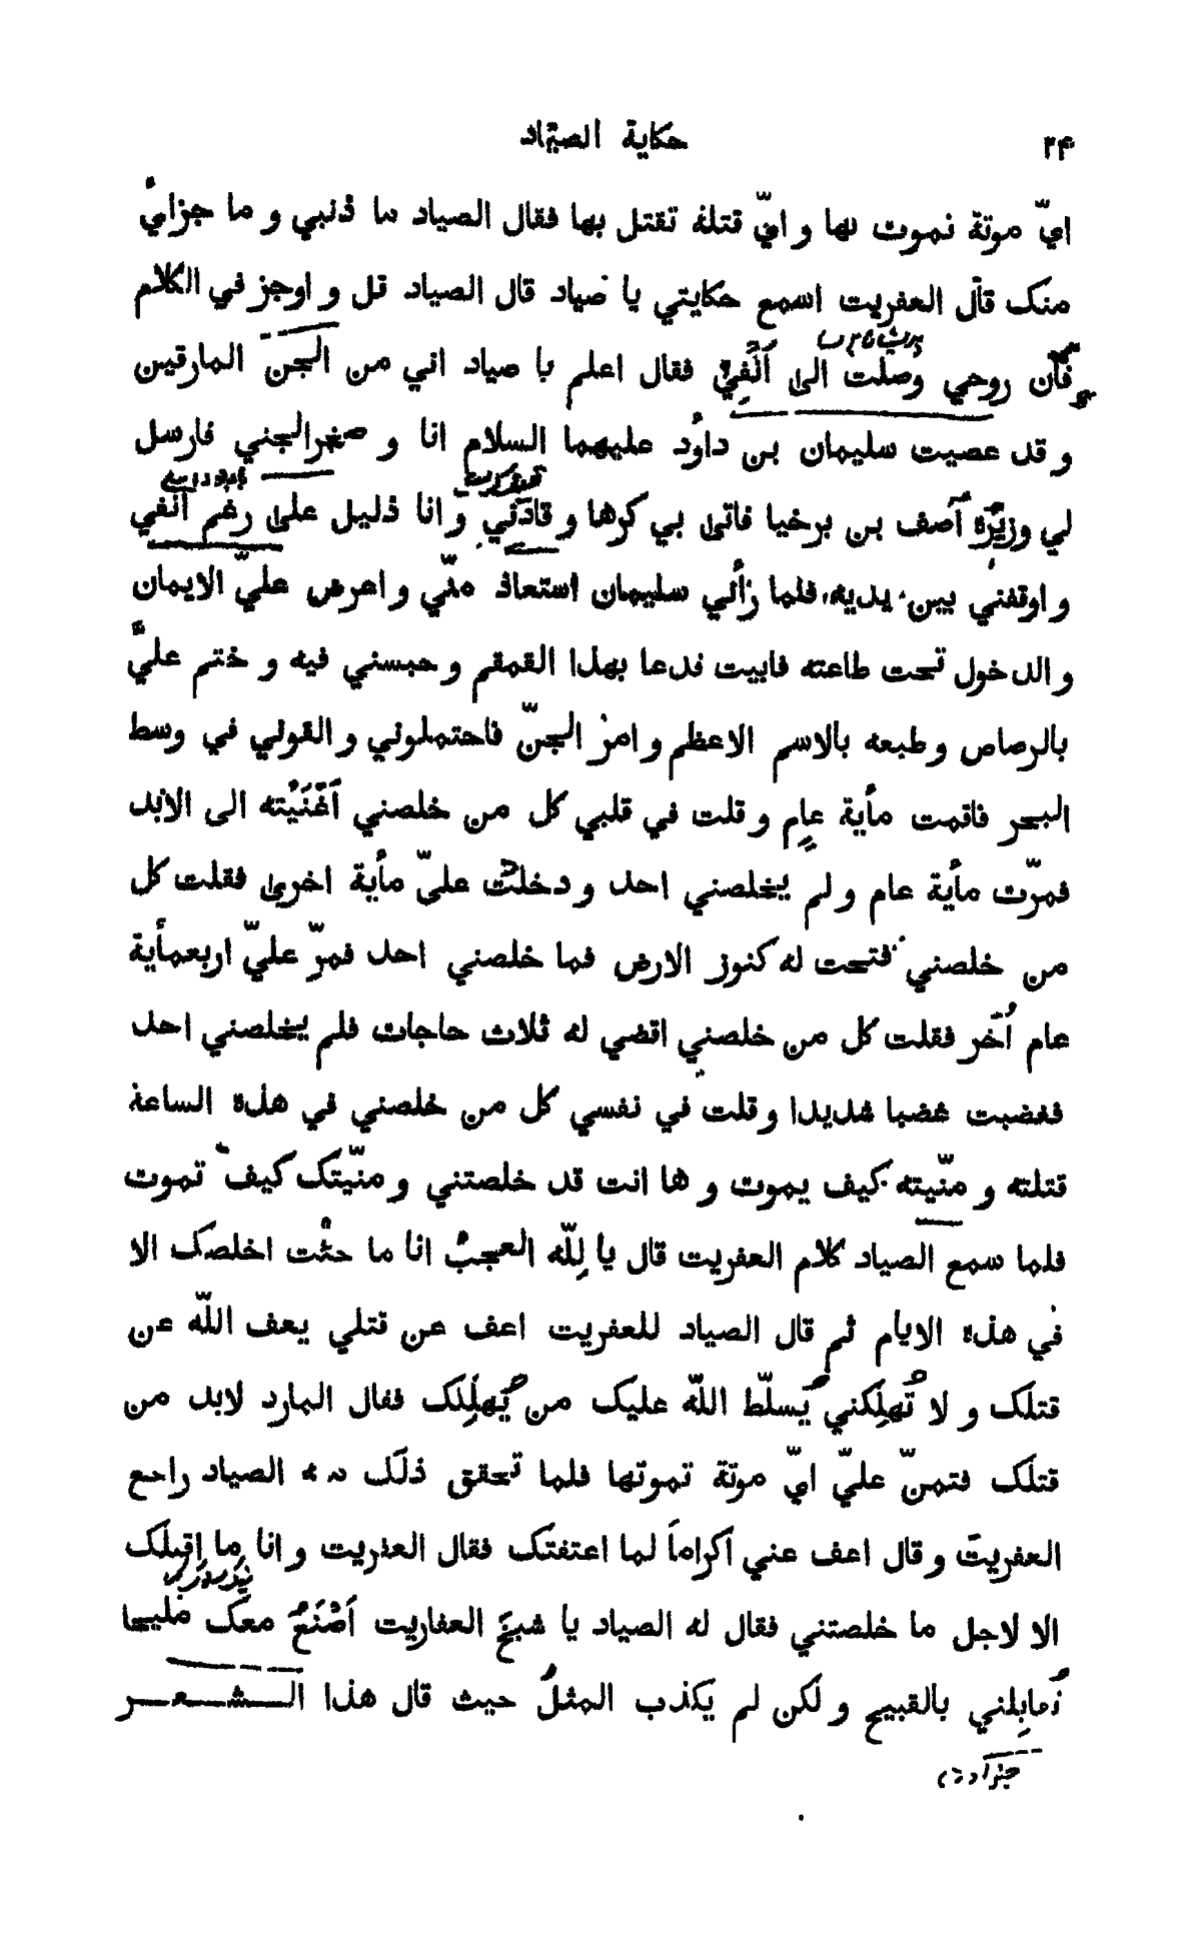 ۲۴ حكاية الصيّاد
ايّ موتة تموت بها و ايّ قتلة تقتل بها فقال الصياد ما ذنبي و ما جزايُ
منك قال العفريت اسمع حكايتي يا صياد قال الصياد قل و اوجز في الكلام
فأن روحي وصلت الى اَنْفِيْ فقال اعلم يا صياد اني من الجن المارقين
و قد عصيت سليمان بن داوُد عليهما السلام انا و صخر الجني فارسل
لي وزيرَه آصف بن برخيا فاتى بي كرها و قادَني و انا ذليل على رغم انفي
و اوقفني بين يديه فلما رأني سليمان استعاذ منّي و اعرض عليّ الايمان
و الدخول تحت طاعته فابيت فدعا بهذا القمقم و حبسني فيه و ختم عليّ
بالرصاص و طبعه بالاسم الاعظم و امر الجنّ فاحتملوني و القوني في وسط
البحر فاقمت مأية عام و قلت في قلبي كل من خلصني اَغْنَيْته الى الابد
فمرّت مأية عام و لم يخلصني احد و دخلت عليّ مأية اخرى فقلت كل
من خلصني فتحت له كنوز الارض فما خلصني احد فمرّ عليّ اربعمأية
عام اُخَر فقلت كل من خلصني اقضي له ثلاث حاجات فلم يخلصني احد
فغضبت غضبا شديدا و قلت في نفسي كل من خلصني في هذه الساعة
قتلته و منّيته كيف يموت و ها انت قد خلصتني و منّيتك كيف تموت
فلما سمع الصياد كلام العفريت قال يا لِلّه العجبُ انا ما جئت اخلصك الا
في هذه الايام ثم قال الصياد للعفريت اعف عن قتلي يعف اللّه عن
قتلك و لا تُهلِكني يُسلّط اللّه عليك من يُهلِكك فقال المارد لابد من
قتلك فتمنّ عليّ ايّ موتة تموتها فلما تحقق ذلك الصياد راجع
العفريت و قال اعف عني اكراماً لما اعتقتك فقال العفريت و انا ما اقتلك
الا لاجل ما خلصتني فقال له الصياد يا شيخ العفاريت اَصْنَعُ معك مليحا
تُقابِلني بالقبيح و لكن لم يكذب المثلُ حيث قال هذا الــشــعــر